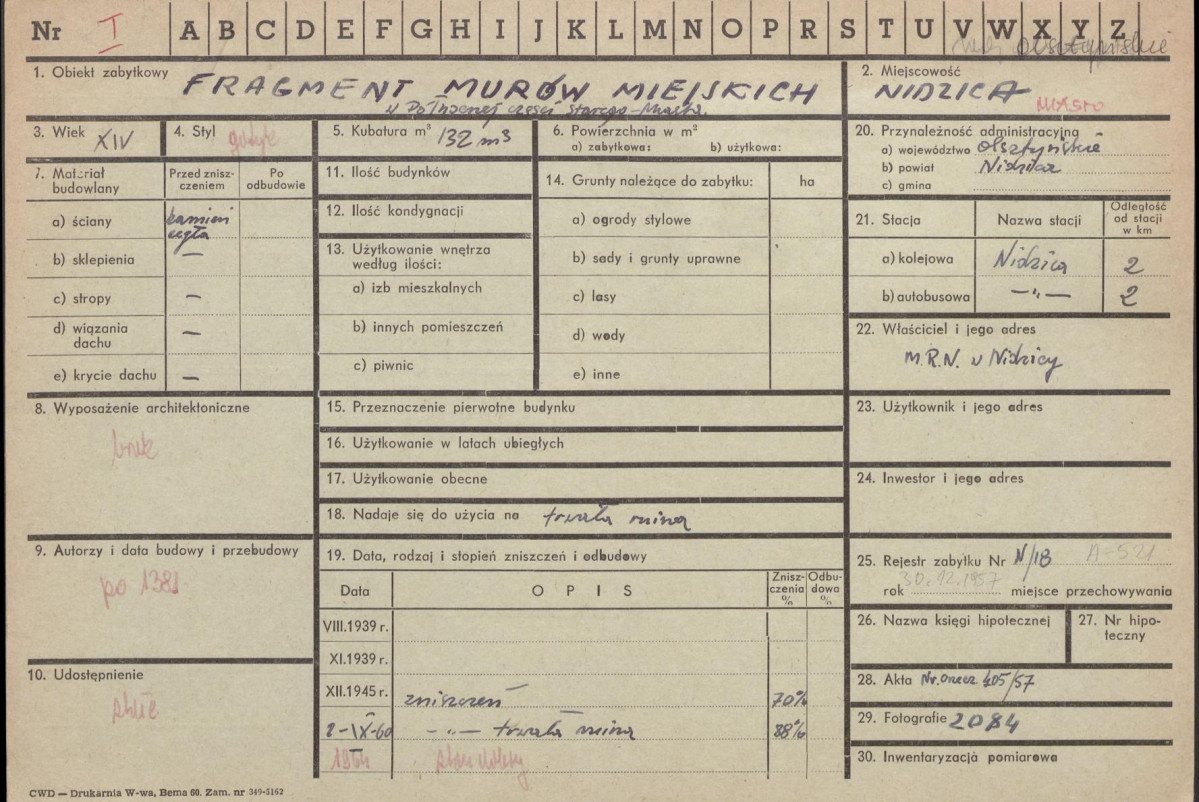 Nr I A B C D E F G H I J K L M N O P R S T U V W X Y Z
woj. olsztyńskie
1. Obiekt zabytkowy FRAGMENT MURÓW MIEJSKICH
w Północnej części Starego-Miasta.
2. Miejscowość
NIDZICA
MIASTO
3. Wiek XIV
4. Styl gotyk
5. Kubatura m³ 132 m³
6. Powierzchnia w m²
a) zabytkowa: b) użytkowa:
20. Przynależność administracyjna
a) województwo olsztyńskie
b) powiat Nidzica
c) gmina
7. Materiał budowlany
Przed zniszczeniem
Po odbudowie
a) ściany kamień
cegła
b) sklepienia —
c) stropy —
d) wiązania dachu —
e) krycie dachu —
11. Ilość budynków
12. Ilość kondygnacji
13. Użytkowanie wnętrza
według ilości:
a) izb mieszkalnych
b) innych pomieszczeń
c) piwnic
14. Grunty należące do zabytku: ha
a) ogrody stylowe
b) sady i grunty uprawne
c) lasy
d) wody
e) inne
21. Stacja Nazwa stacji Odległość od stacji w km
a) kolejowa Nidzica 2
b) autobusowa —"— 2
22. Właściciel i jego adres
M.R.N. w Nidzicy
8. Wyposażenie architektoniczne
brak
15. Przeznaczenie pierwotne budynku
16. Użytkowanie w latach ubiegłych
17. Użytkowanie obecne
18. Nadaje się do użycia na trwała ruina
23. Użytkownik i jego adres
24. Inwestor i jego adres
9. Autorzy i data budowy i przebudowy
po 1381
10. Udostępnienie
19. Data, rodzaj i stopień zniszczeń i odbudowy
Data O P I S Zniszczenia % Odbudowa %
VIII.1939 r.
XI.1939 r.
XII.1945 r. zniszczeń 70%
2-IX-60 —"— trwała ruina 88%
1964
25. Rejestr zabytku Nr N/18 A-521
30.12.1957
rok miejsce przechowywania
26. Nazwa księgi hipotecznej
27. Nr hipoteczny
28. Akta Nr. orzecz. 405/57
29. Fotografie 2084
30. Inwentaryzacja pomiarowa
CWD — Drukarnia W-wa, Bema 60. Zam. nr 349-5162